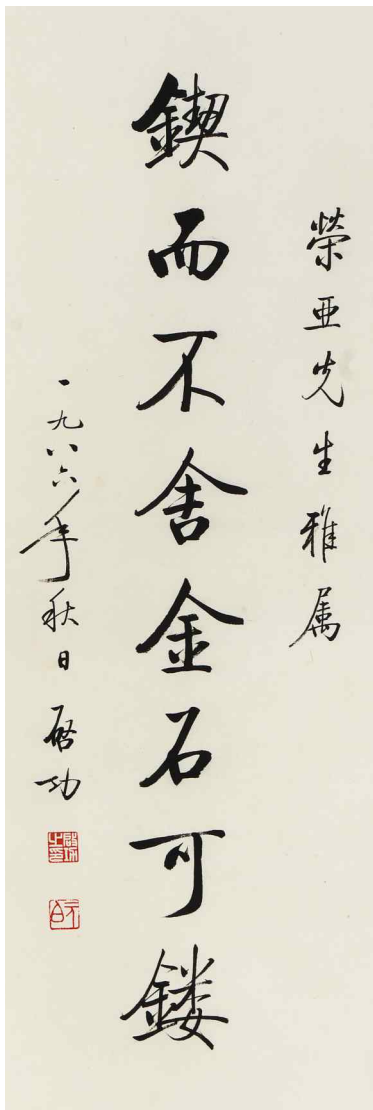 榮亚先生雅属
鍥而不舍金石可鏤
一九八六年秋日 啓功
啟功之印
元白